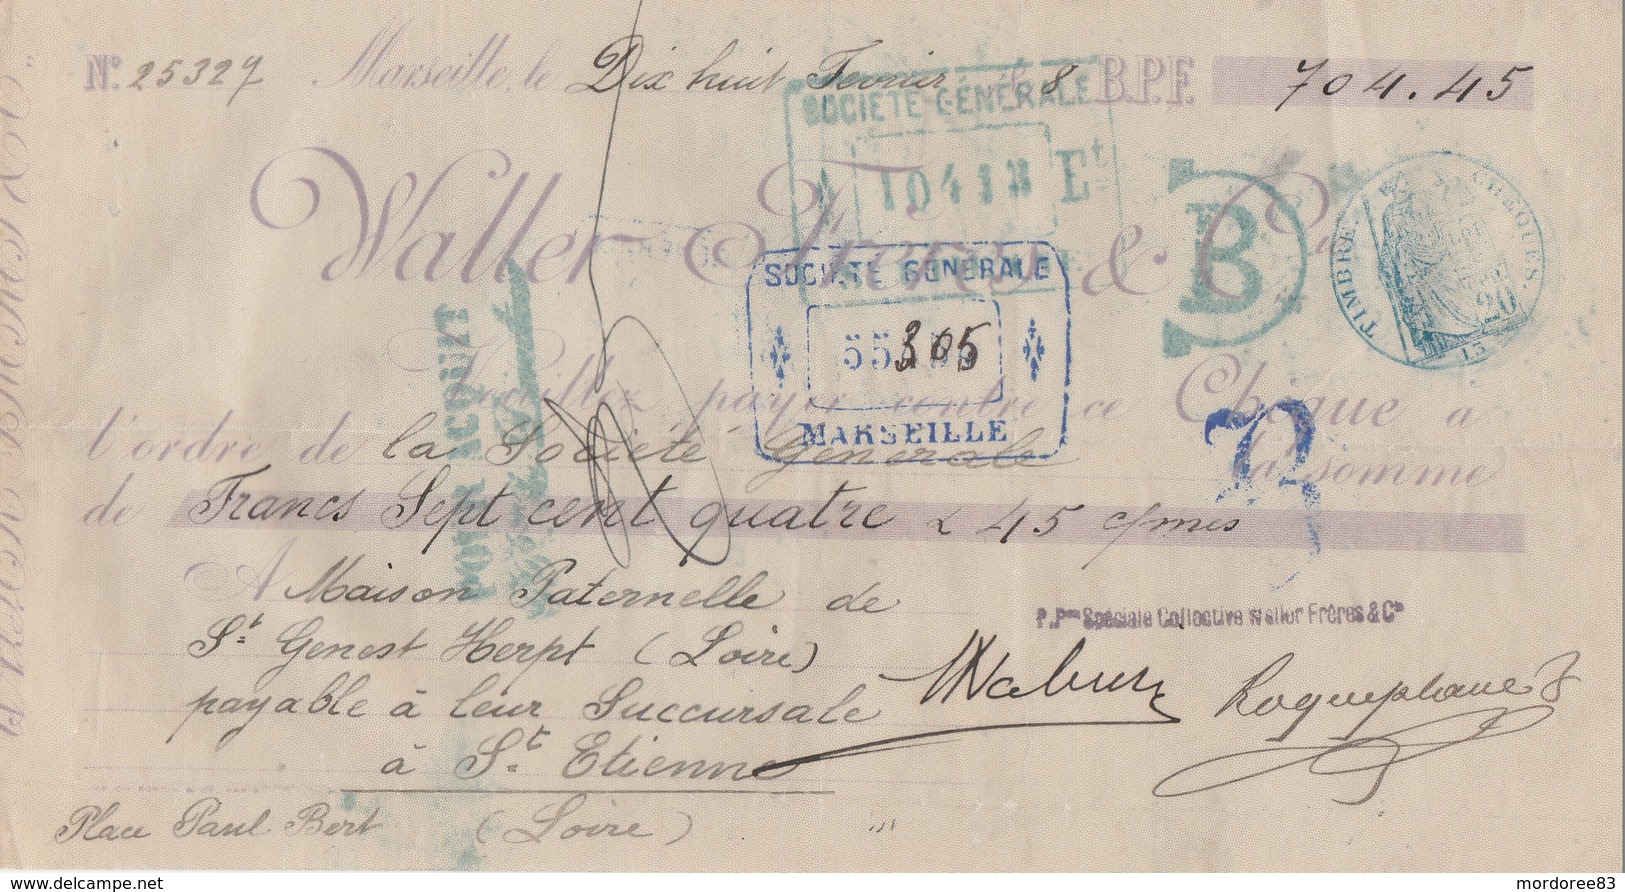 Nº 25327 Marseille, le Dix huit Fevrier 8 B.P.F. 704.45
SOCIÉTÉ GÉNÉRALE
Et
B
TIMBRE. CHÈQUES.
20
13
Waller Frères & Cie
SOCIETE GENERALE
305
MARSEILLE
POUR ACQUIT
Veuillez payer contre ce Chèque à
l'ordre de la Société Générale la somme
72
de Francs Sept cent quatre & 45 c/mes
A Maison Paternelle de
St Genest Herpt (Loire)
payable à leur Succursale
à St Etienne
Place Paul Bert (Loire)
P. Pon Spéciale Collective Waller Frères & Cie
mordoree83
www.delcampe.net